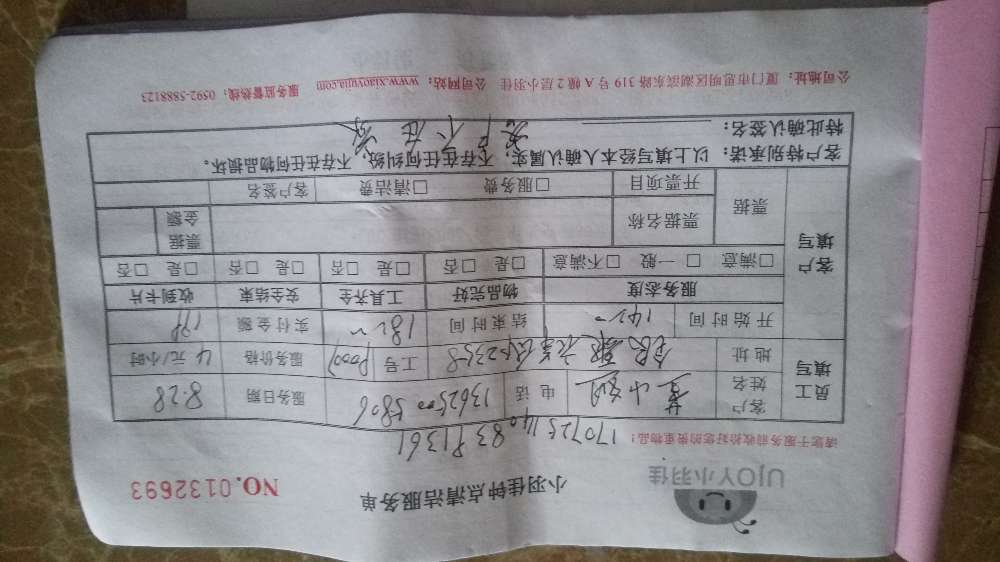 UJOY小羽佳
小羽佳钟点清洁服务单
NO.0132693
请您于服务前收拾好您的贵重物品!
员工填写
客户姓名
电话
服务日期 8.28
地址
工号
服务价格 元/小时
开始时间
结束时间
实付金额
客户填写
服务态度 物品完好 工具齐全 安全结束 收到卡片
□满意 □一般 □不满意 □是 □否 □是 □否 □是 □否 □是 □否
票据
票据名称
票据金额
开票项目 □服务费 □清洁费 客户签名
客户特别承诺: 以上填写经本人确认属实,不存在任何纠纷,不存在任何物品损坏。
特此确认签名: 客户不在家
公司地址: 厦门市思明区湖滨东路 319 号 A 幢 2 层小羽佳 公司网站: www.xiaoyujia.com 服务监督热线: 0592-5888123